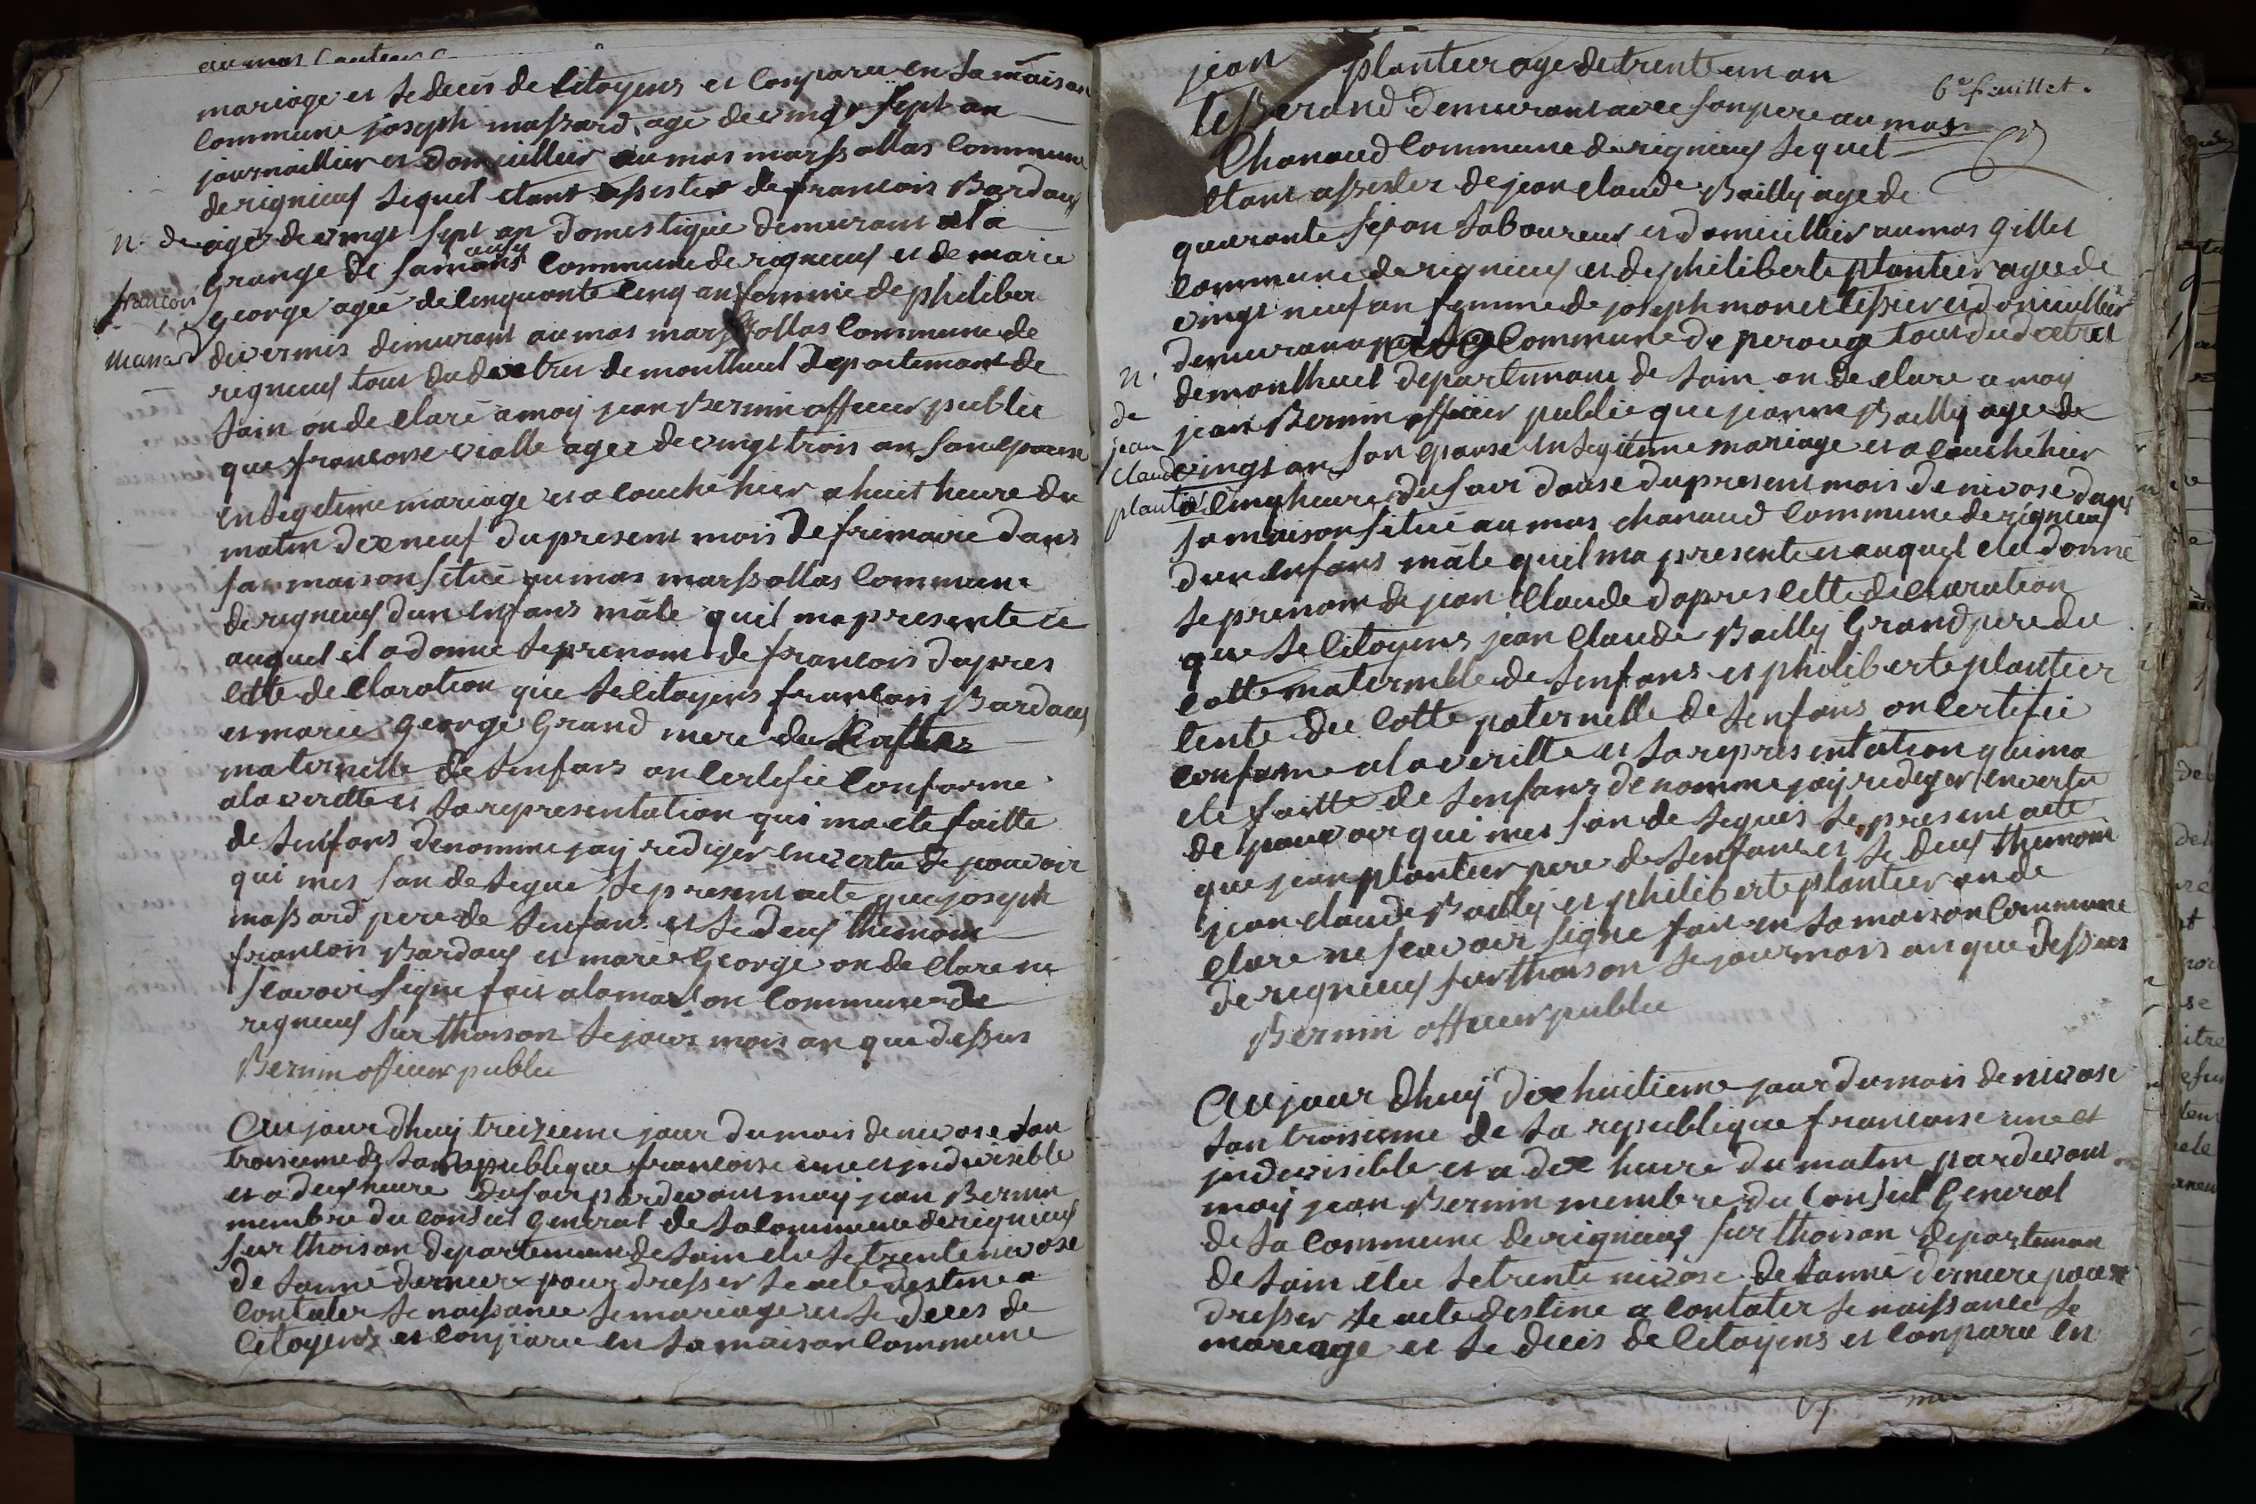 mariage et le deces de citoyens et conparu en la maison
commune joseph massard, age de vingt sept an
journaillier et domicillier au mas marssollas commune
de rignieux lequel etant assister de francois Bardous
age de vingt sept an domestique demurant a la
Grange de commune de rignieux et de marie
George agée de cinquante cinq an femme de philiber
divermis demurant au mas marssollas commune de
rigneux tous du dixtrict de montluel departemant de
lain on de clare a moy jean Bernin officier public
que francoise vialle agee de vingt trois an son epouse
en legetime mariage et a couché hier a huit heure du
matin dixneuf du present mois de frimaire dans
sa maison situé au mas marssollas commune
de rigneux dun enfans mâle quil ma presente et
auquel il a donne le prenom de francois dapres
cette de claration que le citoyens francois Bardous
et marie George Grand mere du
maternelle de lenfans on certifie conforme
a la veritte et la representation qui ma ete faitte
de lenfans denomme jay rediger en vertu de pouvoir
qui mes son de legue le present acte que joseph
massard pere de lenfans et le deux themoin
francois Bardous et marie George on de clare ne
scavoir signe fait a la maison commune de
rigneux sur thoison le jour mois an que dessus
Bernin officier public
n. de
francois
massard
Au jour dhuy treizieme jour du mois de nivose lan
troisieme de la republique francoise une et jndivisible
et a deux heure du soir pardevant moy jean Bernin
membre du conseil general de la commune de rigneux
sur thoison departemen de lain elu le trente nivose
de lanné derniere pour dresser le acte destine a
contater le naissance le mariage et le deces de
citoyens et conparu en la maison commune
6e feuillet.
jean plantier age de trente un an
tisserand demurant avec son pere au mas
Chanaud commune de rigneux lequel
etant assister de jean claude Bailly age de
quarante an laboureur et domicillier au mas gillet
commune de rigneux et de philiberte plantier agee de
vingt neuf an femme de joseph monet tissier et domicillier
demurant a commune de peroug tout du dixtrict
de montluel departemant de lain on de clare a moy
jean Bernin officier public que jeanne Bailly agee de
vingt an son epouse en legitime mariage et a couché hier
a cinq heure du soir douse du present mois de nivose dans
sa maison situé au mas chanaud commune de rigneux
dun enfans mâle quil ma presente et auquel ela donné
le prenom de jean Claude dapres cette de claration
que le citoyens jean claude Bailly Grand pere du
cotte maternelle de lenfans et philiberte plantier
tente du cotte paternelle de lenfans on certifie
conforme a la veritte et la representation qui ma
ete faitte de lenfans denomme jay rediger en vertu
de pouvoir qui mes son de leguës le present acte
que jean plantier pere de lenfans et le deux themoin
jean claude Bailly et philiberte plantier on de
clare ne scavoir signe fait en la maison commune
de rigneux sur thoison le jour mois an que dessus
Bernin officier public
n.
de
jean
Claude
plantier
Au jour dhuy dix huitieme jour du mois de nivose
lan troisieme de la republique francoise une et
jndivisible et a dix heure du matin pardevant
moy jean Bernin membre du conseil General
de la commune de rigneux sur thoison departeman
de lain élu le trente nivose de lanné derniere pour
dresser le acte destine a contater le naissance le
mariage et le deces de citoyens et conparu en